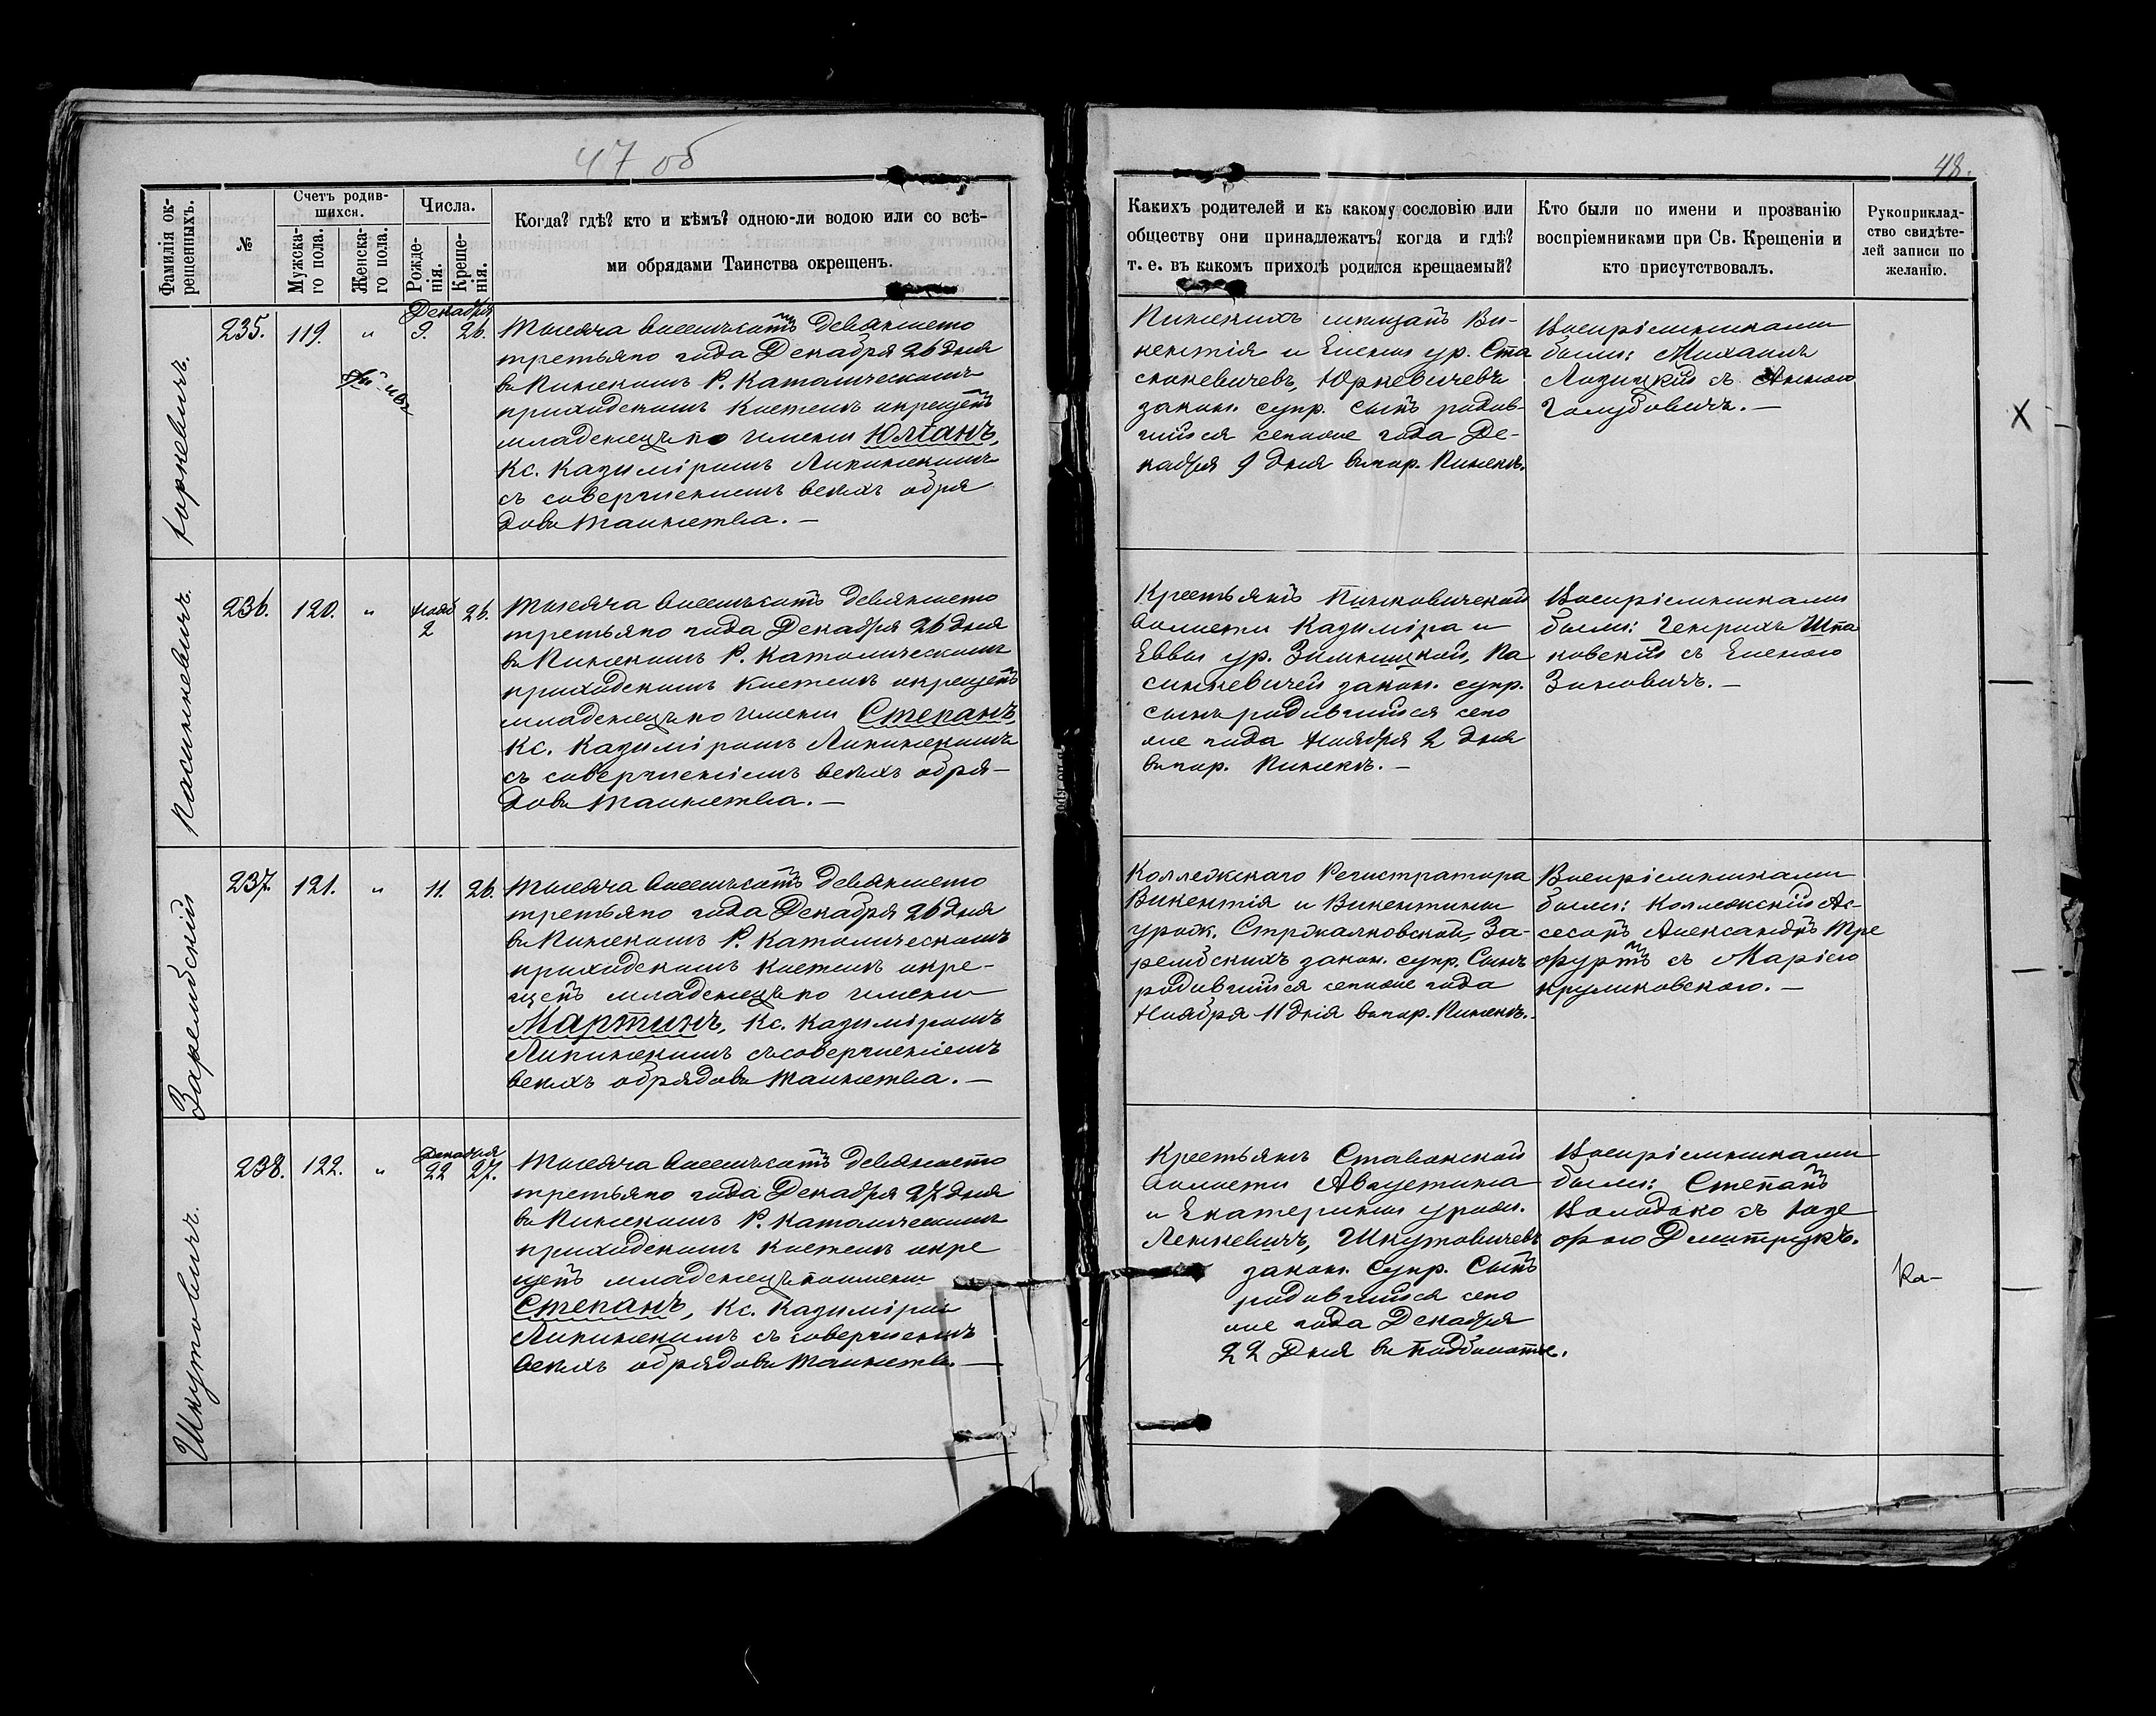 47 об
48.
Фамилія ок-
рещенныхъ.
№
Счетъ родив-
шихся.
Мужска-
го пола.
Женска-
го пола.
Числа.
Рожде-
нія.
Креще-
нія.
Когда? гдѣ? кто и кѣмъ? одною-ли водою или со всѣ-
ми обрядами Таинства окрещенъ.
Какихъ родителей и къ какому сословію или
обществу они принадлежатъ? когда и гдѣ?
т. е. въ какомъ приходѣ родился крещаемый?
Кто были по имени и прозванію
воспріемниками при Св. Крещеніи и
кто присутствовалъ.
Рукоприклад-
ство свидѣте-
лей записи по
желанію.
Юркевичъ.
235.
119.
"
Декабря
9.
26.
Тысяча восемьсотъ девяносто
третьяго года Декабря 26 дня
въ Пинскомъ Р. Католическомъ
приходскомъ костелѣ окрещенъ
младенецъ по имени Юліанъ,
Кс. Казиміромъ Липинскимъ
съ совершеніемъ всѣхъ обря
довъ Таинства. —
Пинскихъ мѣщанъ Ви-
кентія и Елены ур. Ста
Юркевичевъ
закон. супр. сынъ родив-
шійся сего года Де-
кабря 9 дня въ пар. Пинскѣ.
Воспріемниками
были: Михаилъ
Лозицкій съ Анною
Голубовичъ. —
X
Касинкевичъ.
236.
120.
"
Нояб
2
26.
Тысяча восемьсотъ девяносто
третьяго года Декабря 26 дня
въ Пинскомъ Р. Католическомъ
приходскомъ костелѣ окрещенъ
младенецъ по имени Степанъ,
Кс. Казиміромъ Липинскимъ
съ совершеніемъ всѣхъ обря-
довъ Таинства. —
Крестьянъ Пинковичской
волости Казиміра и
Еввы ур. Зимницкой, Ка
синкевичей закон. супр.
сынъ родившійся сего
года Ноября 2 дня
въ пар. Пинскѣ. —
Воспріемниками
были: Генрихъ Шпа
ковскій съ Еленою
Зиновичъ. —
Зарембскій
237.
121.
"
11.
26.
Тысяча восемьсотъ девяносто
третьяго года Декабря 26 дня
въ Пинскомъ Р. Католическомъ
приходскомъ костелѣ окре-
щенъ младенецъ по имени
Мартинъ, Кс. Казиміромъ
Липинскимъ съ совершеніемъ
всѣхъ обрядовъ Таинства. —
Коллежскаго Регистратора
Викентія и Викентины
урож. Стржалковской, За-
рембскихъ закон. супр. Сынъ
родившійся сего года
Ноября 11 дня въ пар. Пинскѣ.
Воспріемниками
были: Коллежскій Ас-
сесоръ Александръ Тре
фуртъ съ Маріею
Круликовскою. —
Шкутовичъ.
238.
122.
"
Декабря
22
27.
Тысяча восемьсотъ девяносто
третьяго года Декабря 27 дня
въ Пинскомъ Р. Католическомъ
приходскомъ костелѣ окре
щенъ младенецъ по имени
Степанъ, Кс. Казиміромъ
Липинскимъ съ совершеніемъ
всѣхъ обрядовъ Таинства. —
Крестьянъ Ставокской
волости Августина
и Екатерины урожд.
Ленкевичъ, Шкутовичевъ
закон. Супр. Сынъ
родившійся сего
года Декабря
22 Дня въ
Воспріемниками
были: Степанъ
Володько съ Юзе
фою Дмитрукъ.
Ка-